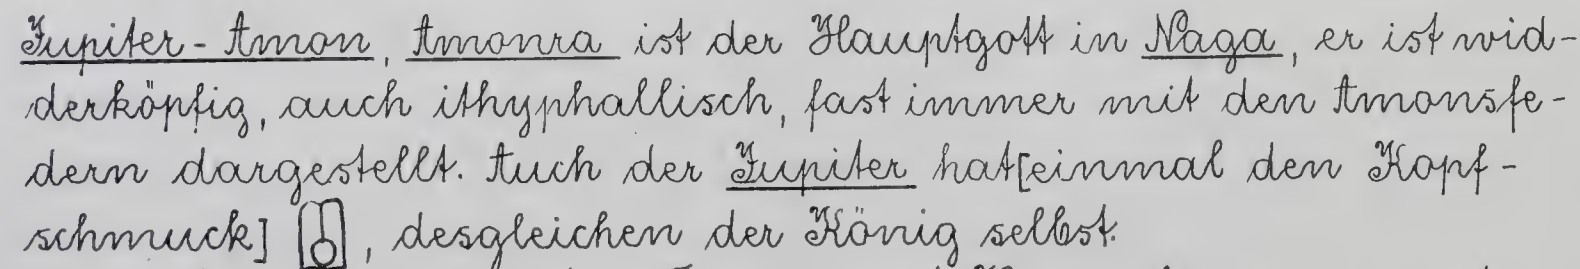 Jupiter-Amon, Amonra ist der Hauptgott in Naga, er ist wid-
derköpfig, auch ithyphallisch, fast immer mit den Amonsfe-
dern dargestellt. Auch der Jupiter hat [einmal den Kopf-
schmuck] , desgleichen der König selbst.